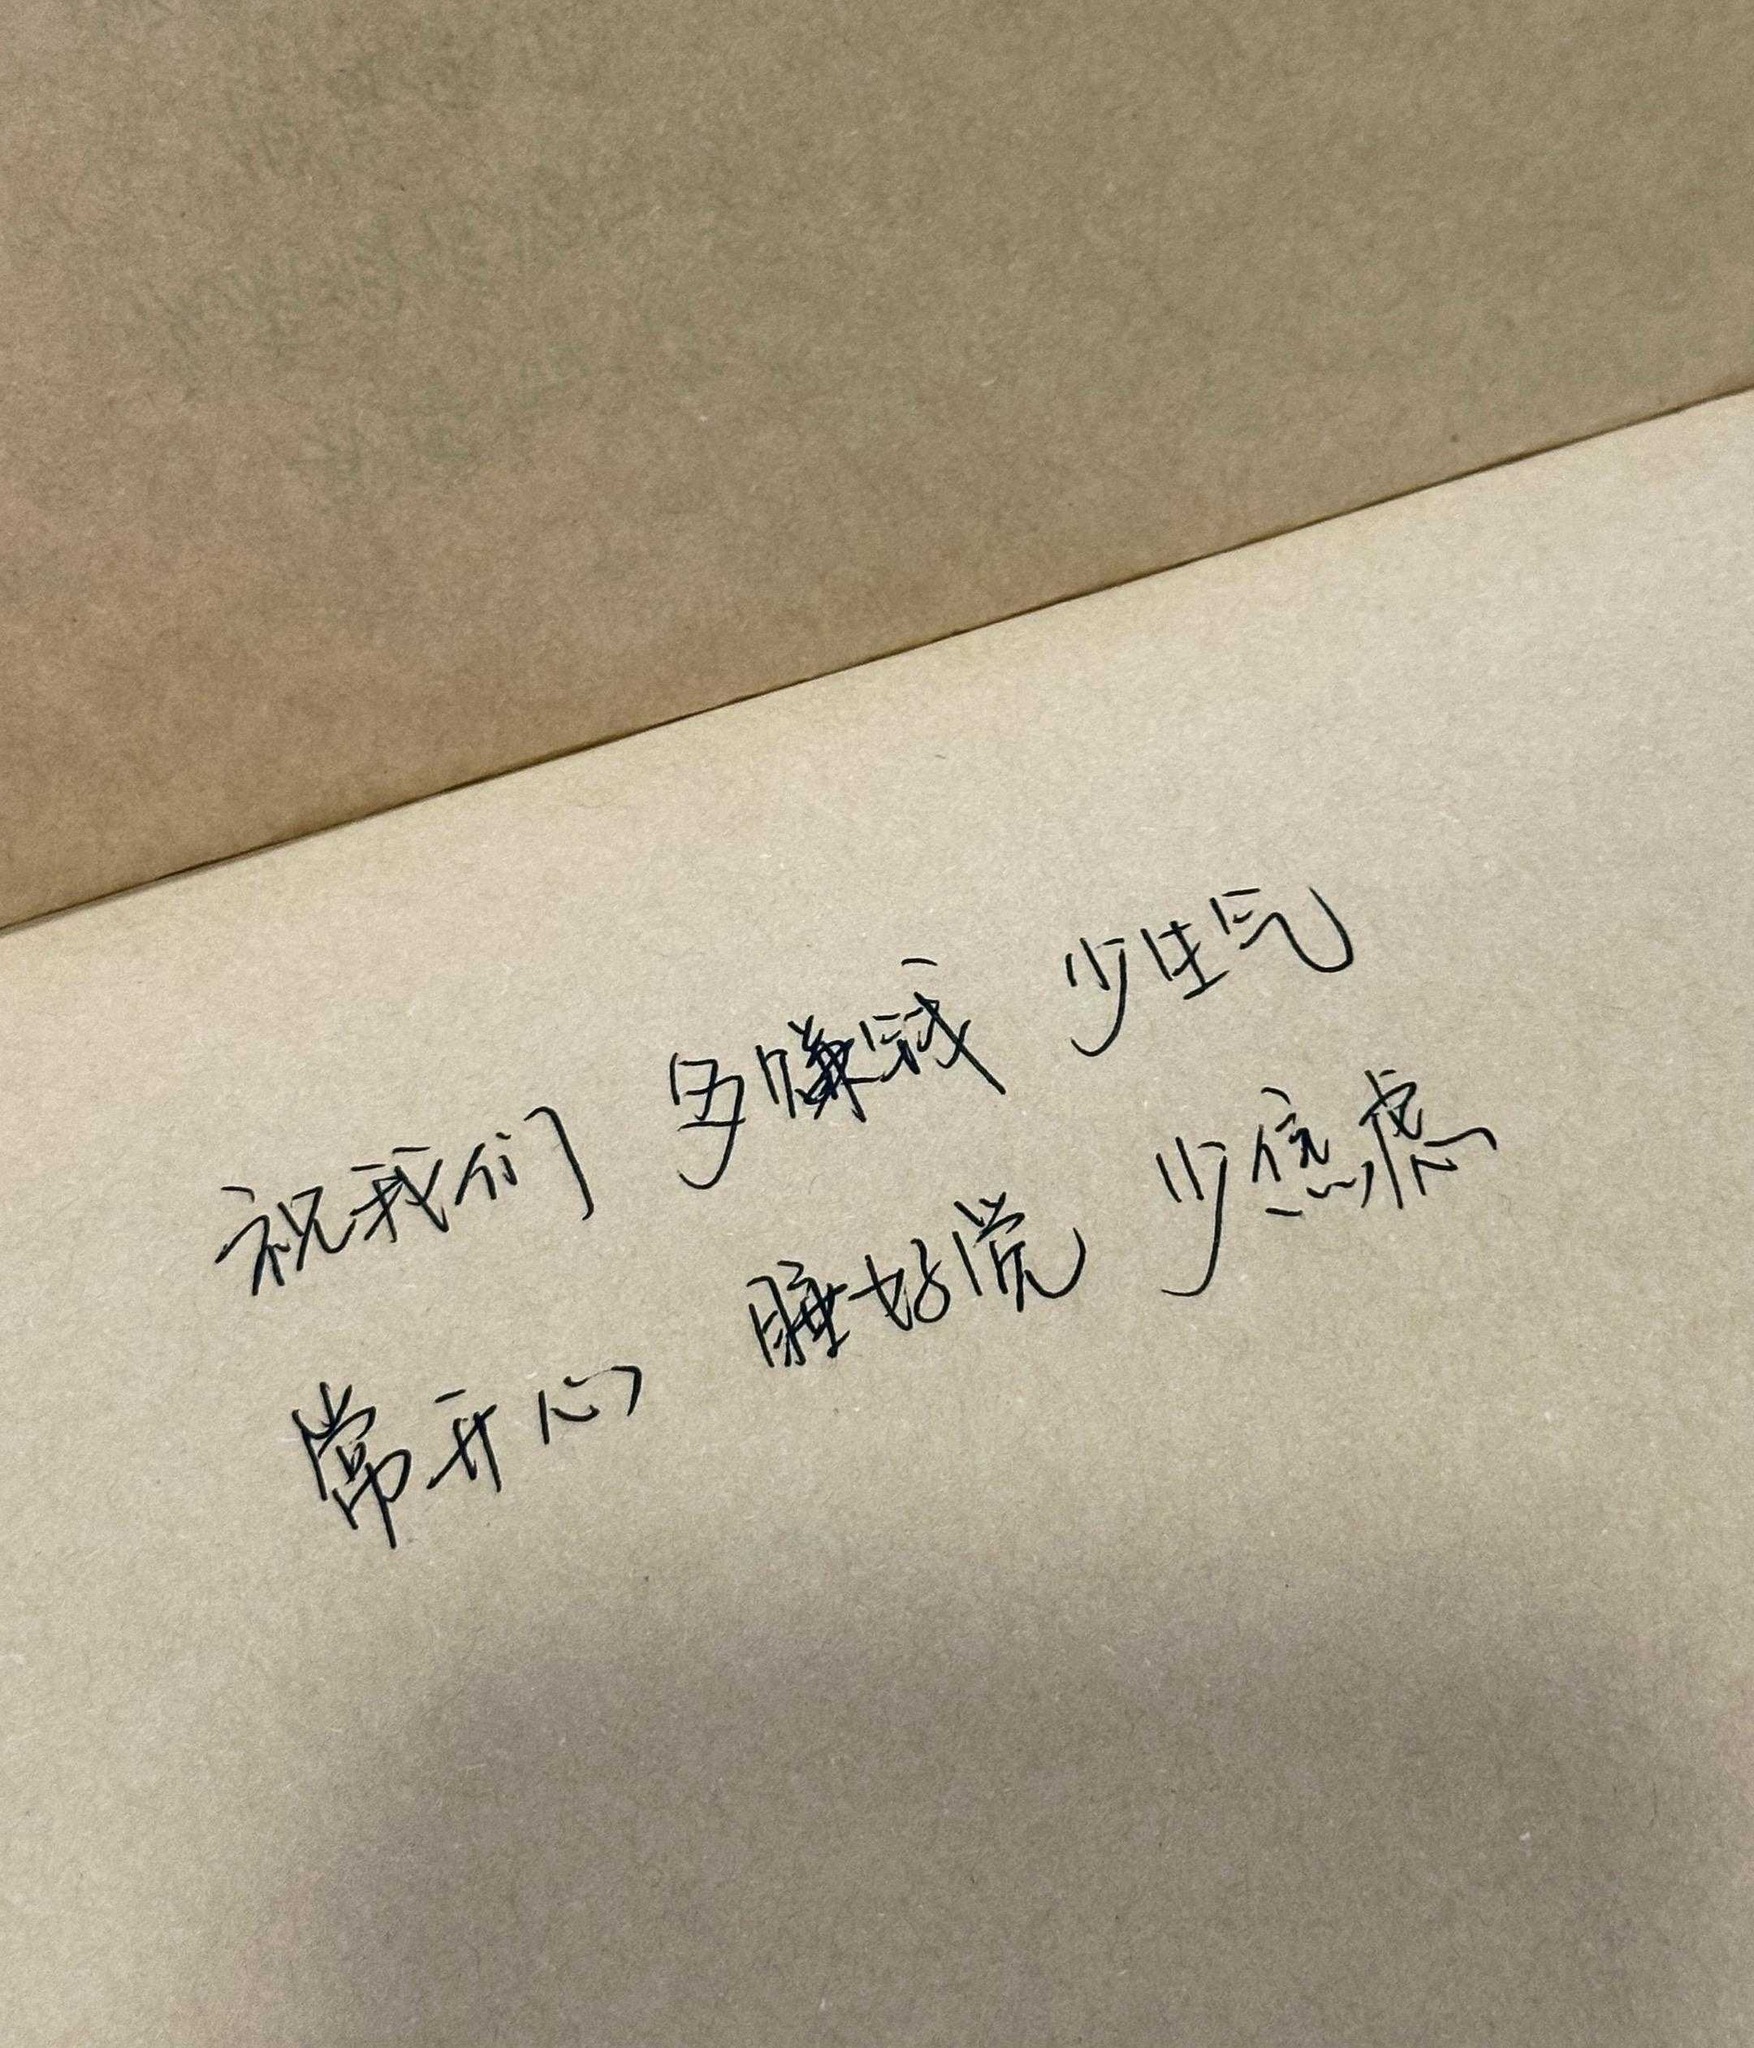 祝我们 多赚钱 少生气
常开心 睡好觉 少焦虑